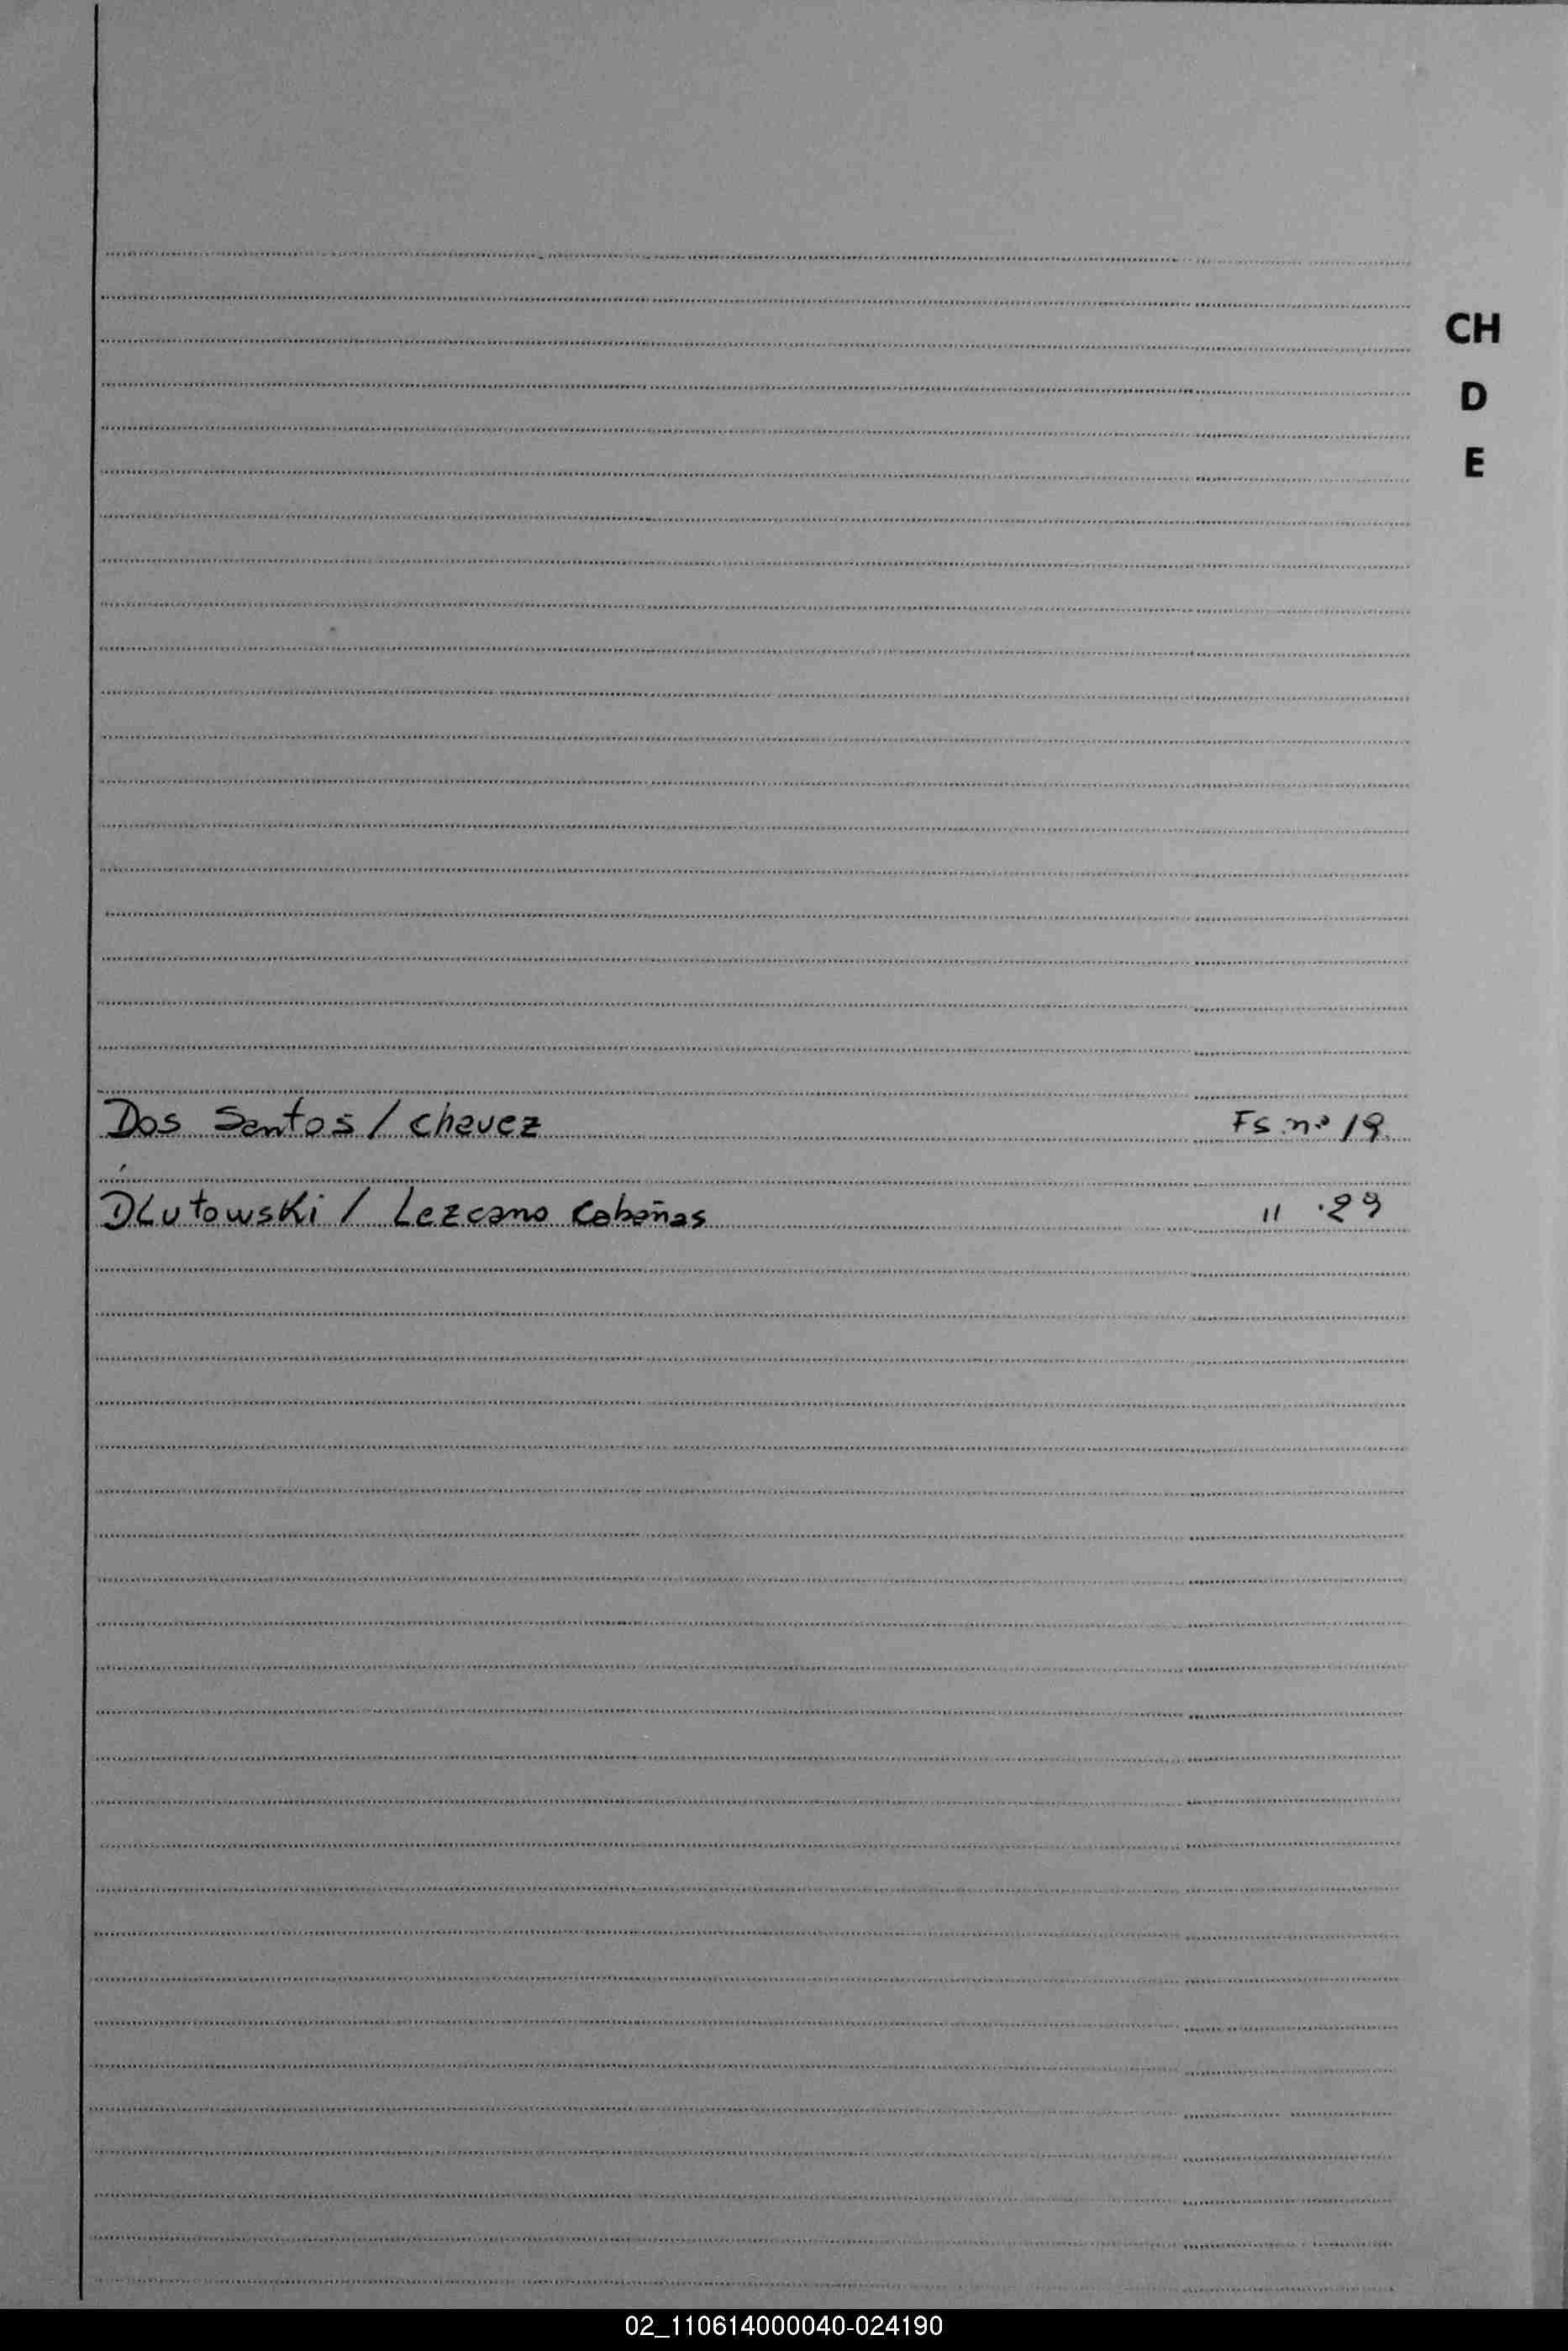 CH
D
E
Dos Santos / Chavez Fs nº 19
DLutowski / Lezcano Cabañas " 29
02_110614000040-024190